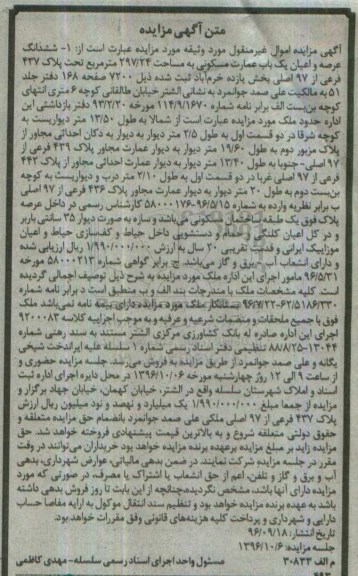 متن آگهی مزایده
آگهی مزایده اموال غیرمنقول مورد وثیقه مورد مزایده عبارت است از: ۱- ششدانگ
عرصه و اعیان یک باب عمارت مسکونی به مساحت ۲۹۷/۲۴ مترمربع تحت پلاک ۴۳۷
فرعی از ۹۷ اصلی بخش یازده خرم‌آباد ثبت شده ذیل ۷۲۰۰ صفحه ۱۶۸ دفتر جلد
۵۱ به مالکیت علی صمد جوانمرد به نشانی الشتر خیابان طالقانی کوچه ۶ متری انتهای
کوچه بن‌بست الف برابر نامه شماره ۱۱۴/۹/۱۶۷۰ مورخه ۹۳/۲/۲۰ دفتر بازداشتی این
اداره حدود ملک مورد مزایده عبارت است از شمالا به طول ۱۳/۵۰ متر دیواریست به
کوچه شرقا در دو قسمت اول به طول ۲/۵ متر دیوار به دیوار به دکان احداثی مجاور از
پلاک مزبور دوم به طول ۱۹/۶۰ متر دیوار به دیوار عمارت مجاور پلاک ۴۳۹ فرعی از
۹۷ اصلی- جنوبا به طول ۱۳/۴۰ متر دیوار به دیوار عمارت احداثی مجاور از پلاک ۴۴۲
فرعی از ۹۷ اصلی غربا در دو قسمت اول به طول ۲/۱۰ متر درب و دیواریست به کوچه
بن‌بست دوم به طول ۲۰ متر دیوار به دیوار عمارت مجاور پلاک ۴۳۶ فرعی از ۹۷ اصلی
ب برابر نظریه وارده به شماره ۹۶/۵/۱۵-۵۸۰۰۰۱۷۶ کارشناس رسمی در داخل عرصه
پلاک فوق یک طبقه ساختمان مسکونی می‌باشد وسازه به صورت دیوار ۳۵ سانتی باربر
و در کل اعیان کلنگی و حمام و دستشویی داخل حیاط و کف‌سازی حیاط و اعیان
موزاییک ایرانی و قدمت تقریبی ۲۰ سال به ارزش ۱/۹۹۰/۰۰۰/۰۰۰ ریال ارزیابی شده
و دارای انشعاب آب - برق و گاز می‌باشد. ج- برابر گواهی شماره ۵۸۰۰۰۲۱۳ مورخه
۹۶/۵/۳۱ مامور اجرای این اداره ملک مورد مزایده به شرح ذیل توصیف اجمالی گردیده
است. کلیه مشخصات ملک با مندرجات بند الف و ب منطبق است د برابر نامه شماره
۹۶/۷/۲۲-۶۲/۵۱۸۶/۳۳۰ بستانکار ملک مورد مزایده دارای بیمه نامه نمی‌باشد ملک
فوق با جمیع ملحقات و منضمات شرعیه و عرفیه و به موجب اجراییه کلاسه ۹۲۰۰۰۸۲
اجرای این اداره صادره له بانک کشاورزی مرکزی الشتر مستند به سند رهنی شماره
۱۳۰۴۳-۸۸/۸/۲۵ تنظیمی دفتر اسناد رسمی شماره ۱ سلسله علیه ایراندخت شیخی
یگانه و علی صمد جوانمرد از طریق مزایده به فروش می‌رسد. جلسه مزایده حضوری و
از ساعت ۹ الی ۱۲ روز چهارشنبه مورخه ۱۳۹۶/۱۰/۰۶ در محل دایره اجرای اداره ثبت
اسناد و املاک شهرستان سلسله واقع در الشتر، خیابان کهمان، خیابان جهاد برگزار و
مزایده از جمعا مبلغ ۱/۹۹۰/۰۰۰/۰۰۰ یک میلیارد و نهصد و نود میلیون ریال ارزش
پلاک ۴۳۷ فرعی از ۹۷ اصلی ملکی علی صمد جوانمرد بانضمام حق مزایده متعلقه و
حقوق دولتی متعلقه شروع و به بالاترین قیمت پیشنهادی فروخته خواهد شد. حق
مزایده زاید بر مبلغ مزایده برعهده برنده مزایده خواهد بود خریداران می‌توانند در وقت
مقرر در جلسه مزایده شرکت نمایند. در ضمن بدهی مالیاتی، عوارض شهرداری، بدهی
آب و برق و گاز و تلفن، اعم از حق انشعاب یا اشتراک یا مصرف، در صورتی که مورد
مزایده دارای آنها باشد، مشخص نگردیده‌چنانچه از این بابت تا روز فروش بدهی داشته
باشد به عهده برنده مزایده خواهد بود و تنظیم سند انتقال موکول به ارایه مفاصا حساب
دارایی و شهرداری و پرداخت کلیه هزینه‌های قانونی وفق مقررات خواهد بود.
تاریخ انتشار: ۹۶/۰۹/۱۸
جلسه مزایده: ۱۳۹۶/۱۰/۶
م الف ۳۰۸۳۳ مسئول واحد اجرای اسناد رسمی سلسله- مهدی کاظمی